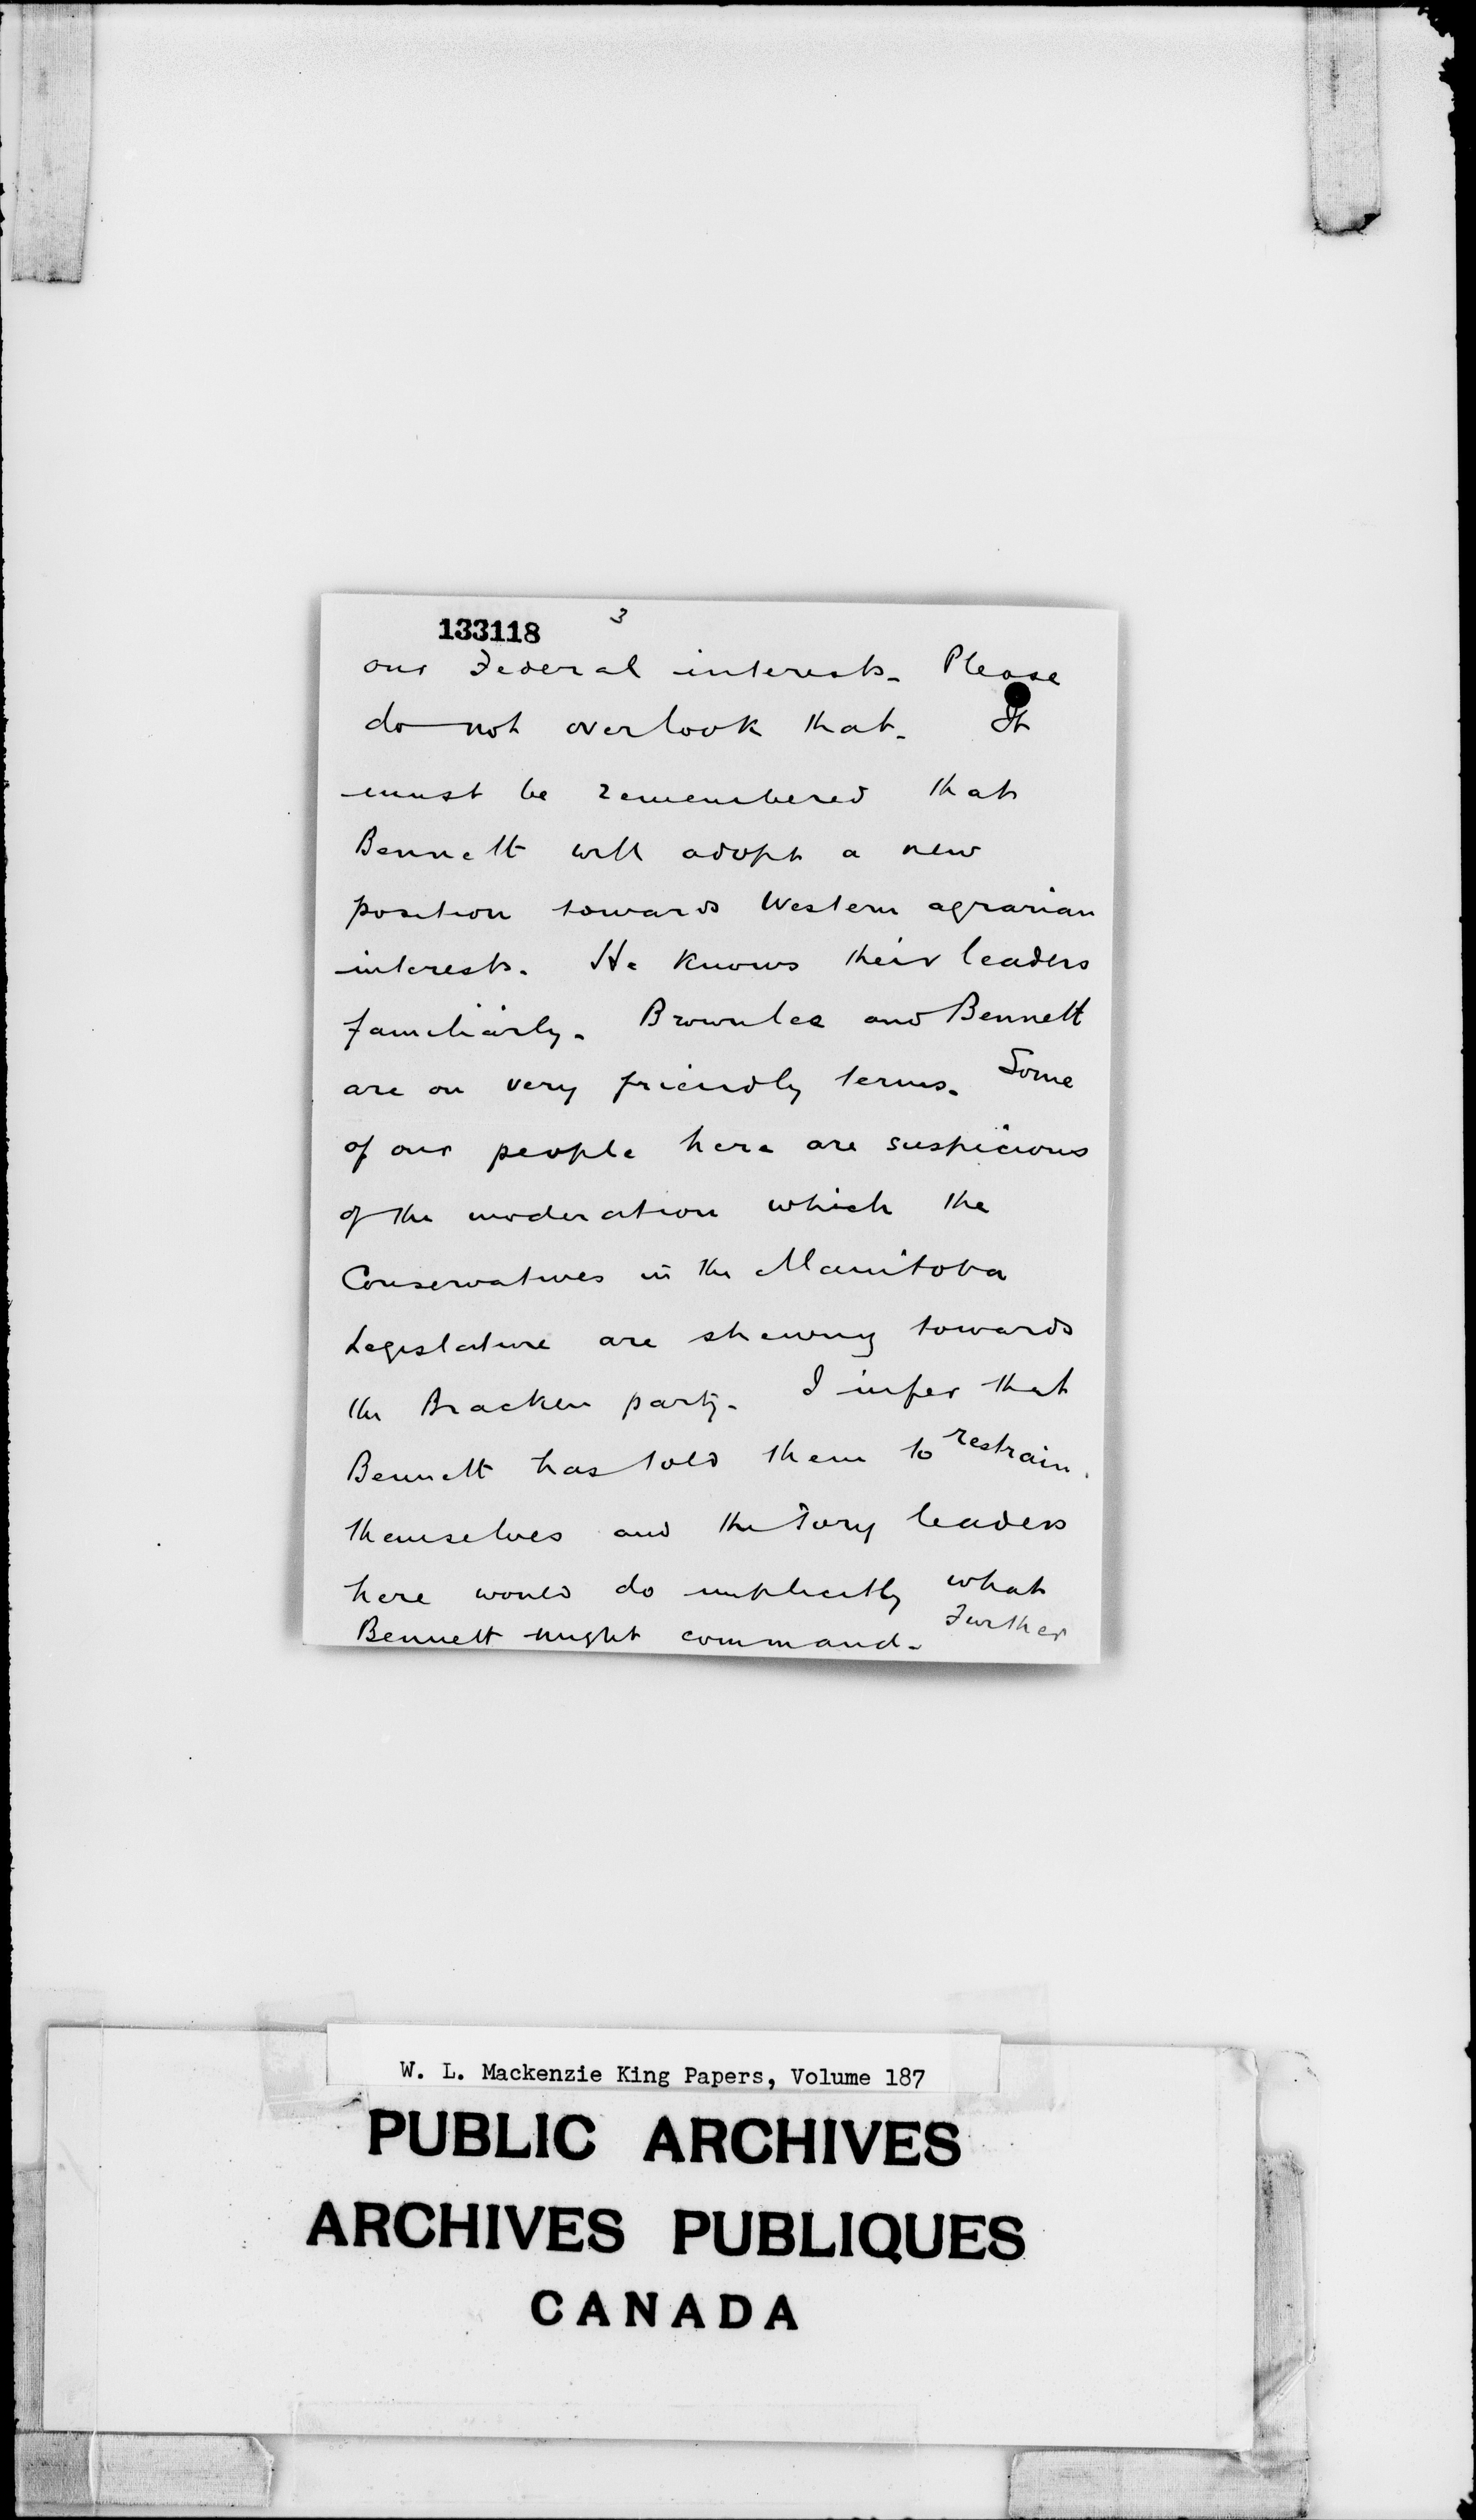 133118
3
our Federal interests. Please
do not overlook that. It
must be remembered that
Bennett will adopt a new
position towards Western agrarian
interests. He knows their leaders
familiarly. Brownlee and Bennett
are on very friendly terms. Some
of our people here are suspicious
of the moderation which the
Conservatives in the Manitoba
Legislature are shewing towards
the Bracken party. I infer that
Bennett has told them to restrain
themselves and the Tory leaders
here would do implicitly what
Bennett might command. Further
W. L. Mackenzie King Papers, Volume 187
PUBLIC ARCHIVES
ARCHIVES PUBLIQUES
CANADA